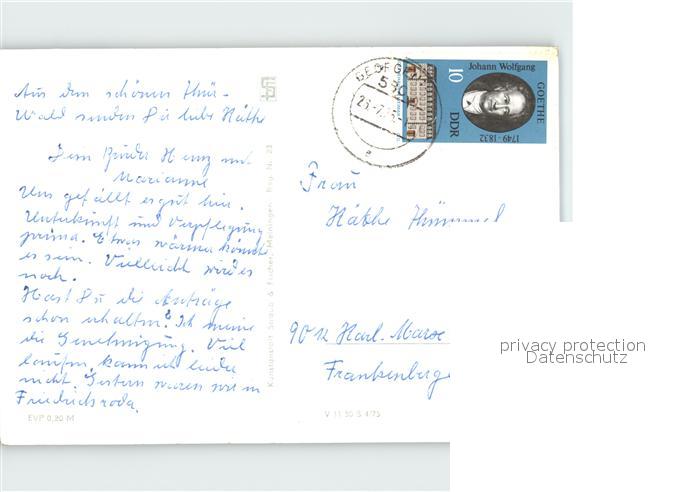 Aus dem schönen Thür-
Wald senden Dir liebe Käthe
Dein Bruder Heinz und
Marianne
Uns gefällt es gut hier.
Unterkunft und Verpflegung
prima. Etwas wärmer könnte
es sein. Vielleicht wird es
noch.
Hast Du die Anträge
schon erhalten? Ich meine
die Genehmigung. Viel
laufen kann ich leider
nicht. Gestern waren wir in
Friedrichroda.
EVP 0,20 M
Kunstanstalt Straub & Fischer, Meiningen Reg. Nr. 23
V 11 50 S 4/75
10
Johann Wolfgang
GOETHE
1749-1832
DDR
Frau
Käthe Hümmel
9012 Karl-Marx
Frankenberger
privacy protection
Datenschutz